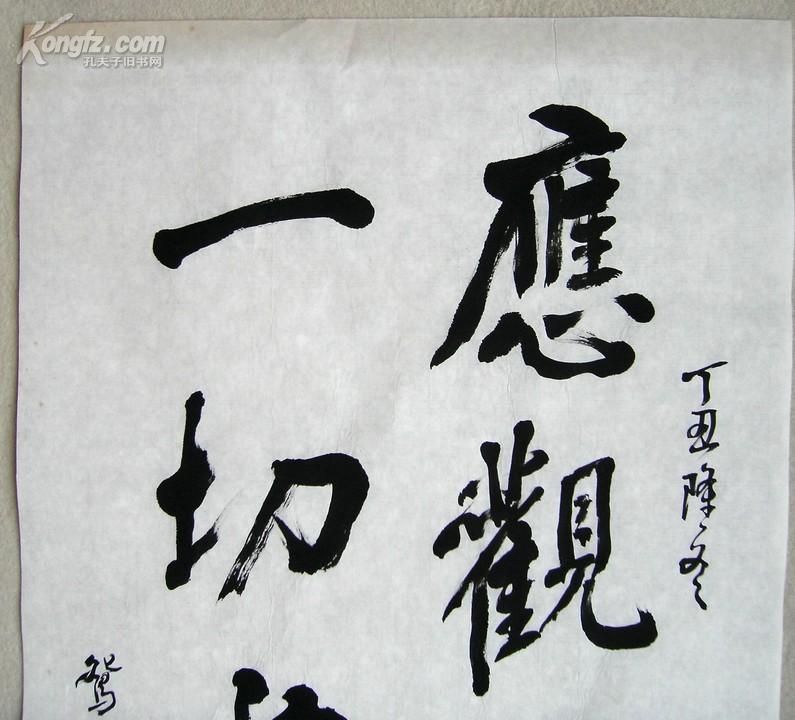 Kongfz.com
孔夫子旧书网
丁丑隆冬
應觀
一切
鴛